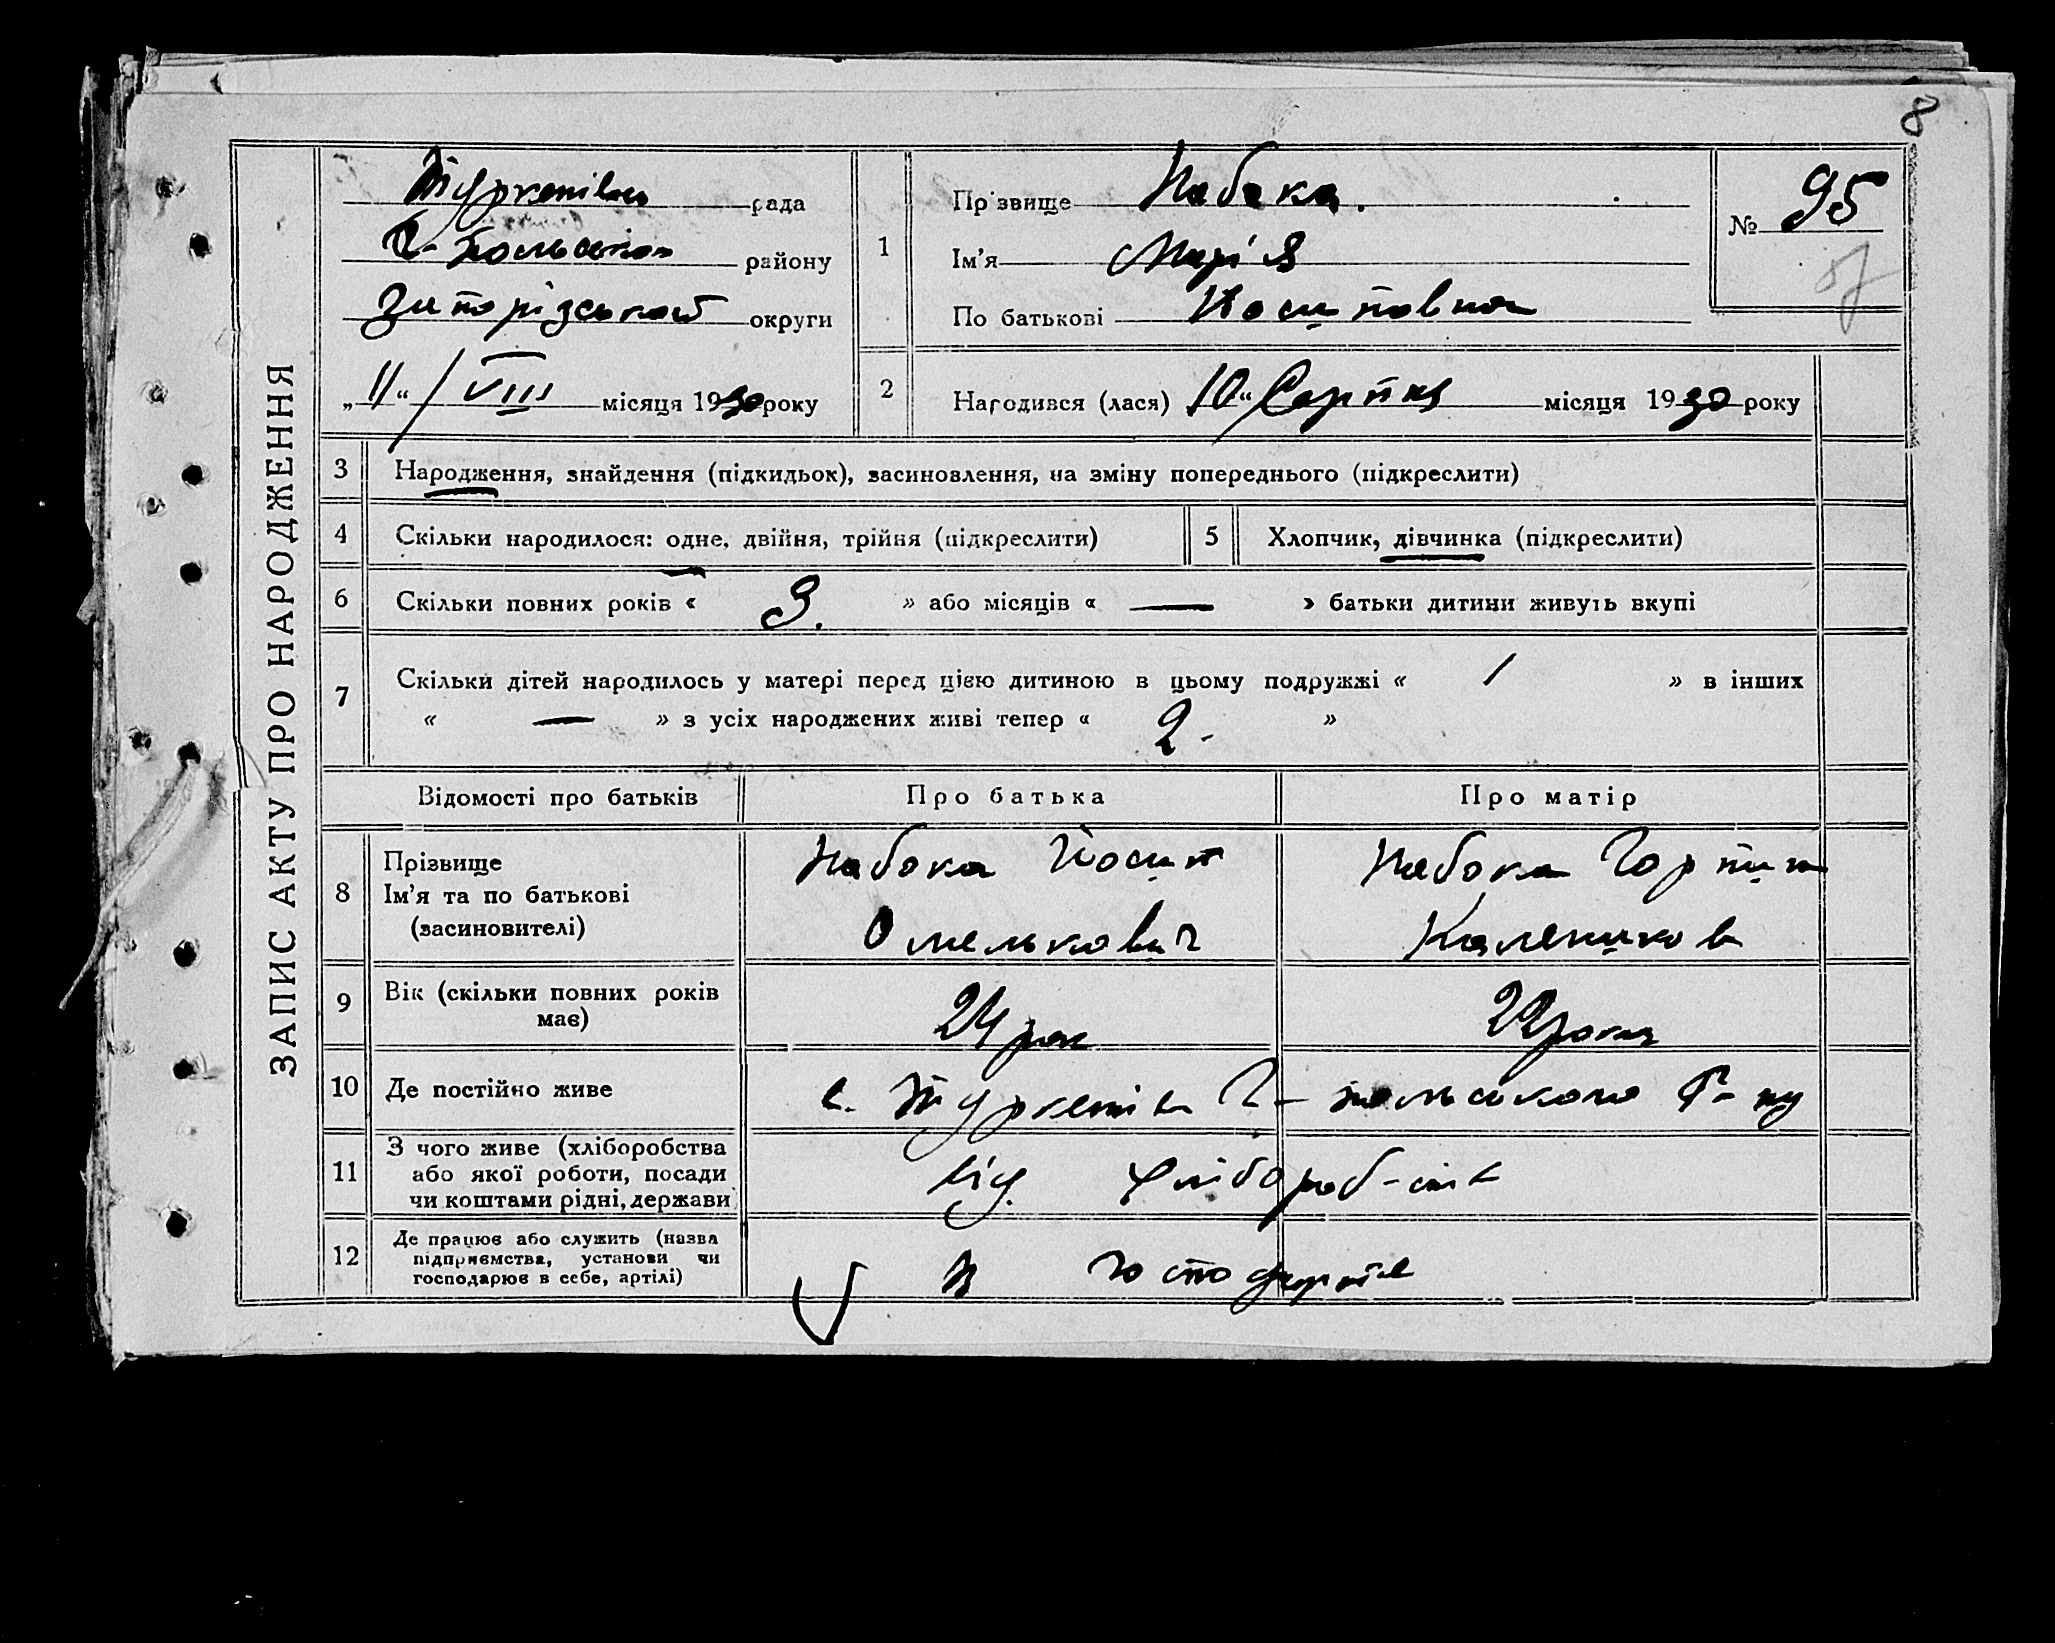 8
ЗАПИС АКТУ ПРО НАРОДЖЕННЯ
Туркенівка рада
Г-Польського району
Запорізської округи
„11“ / VIII місяця 1930 року
1
Прізвище Набока.
Ім'я Марія
По батькові Йосиповна
№ 95
2 Народився (лася) 10“ Серпня місяця 1930 року
3 Народження, знайдення (підкидьок), засиновлення, на зміну попереднього (підкреслити)
4 Скільки народилося: одне, двійня, трійня (підкреслити) 5 Хлопчик, дівчинка (підкреслити)
6 Скільки повних років « 3. » або місяців « — » батьки дитини живуть вкупі
7 Скільки дітей народилось у матері перед цією дитиною в цьому подружжі « 1 » в інших
« — » з усіх народжених живі тепер « 2. »
Відомості про батьків Про батька Про матір
8 Прізвище
Ім'я та по батькові
(засиновителі)
Набока Йосип
Омелькович
Набока Горпина
Каленикова
9 Вік (скільки повних років
має)
24 рок
22 роки
10 Де постійно живе с. Туркенівка Г-польського Р-ну
11 З чого живе (хліборобства
або якої роботи, посади
чи коштами рідні, держави
від хлібороб-ств
12 Де працює або служить (назва
підприємства, установи чи
господарює в себе, артілі)
В господарстві